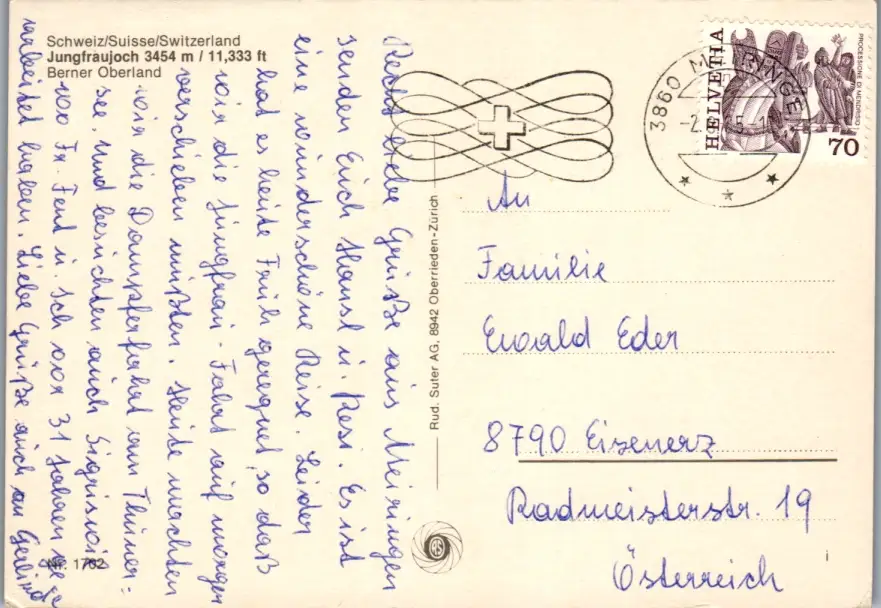 Schweiz/Suisse/Switzerland
Jungfraujoch 3454 m / 11,333 ft
Berner Oberland
Recht liebe Grüße aus Meiringen
senden Euch Hansl u. Resi. Es ist
eine wunderschöne Reise. Leider
hat es heute Früh geregnet, so daß
wir die Jungfrau-Fahrt auf morgen
verschieben mußten. Heute machten
wir die Dampferfahrt am Thuner=
see. Und besuchten auch Sigriswil
wo Fr. u. Ich vor 31 Jahren ge=
arbeitet haben. Liebe Grüße auch an Gerlinde
Nr. 1762
Rud. Suter AG, 8942 Oberrieden-Zürich
3860 MEIRINGEN
HELVETIA
PROCESSIONE DI MENDRISIO
70
An
Familie
Ewald Eder
8790 Eisenerz
Radmeisterstr. 19
Österreich
i